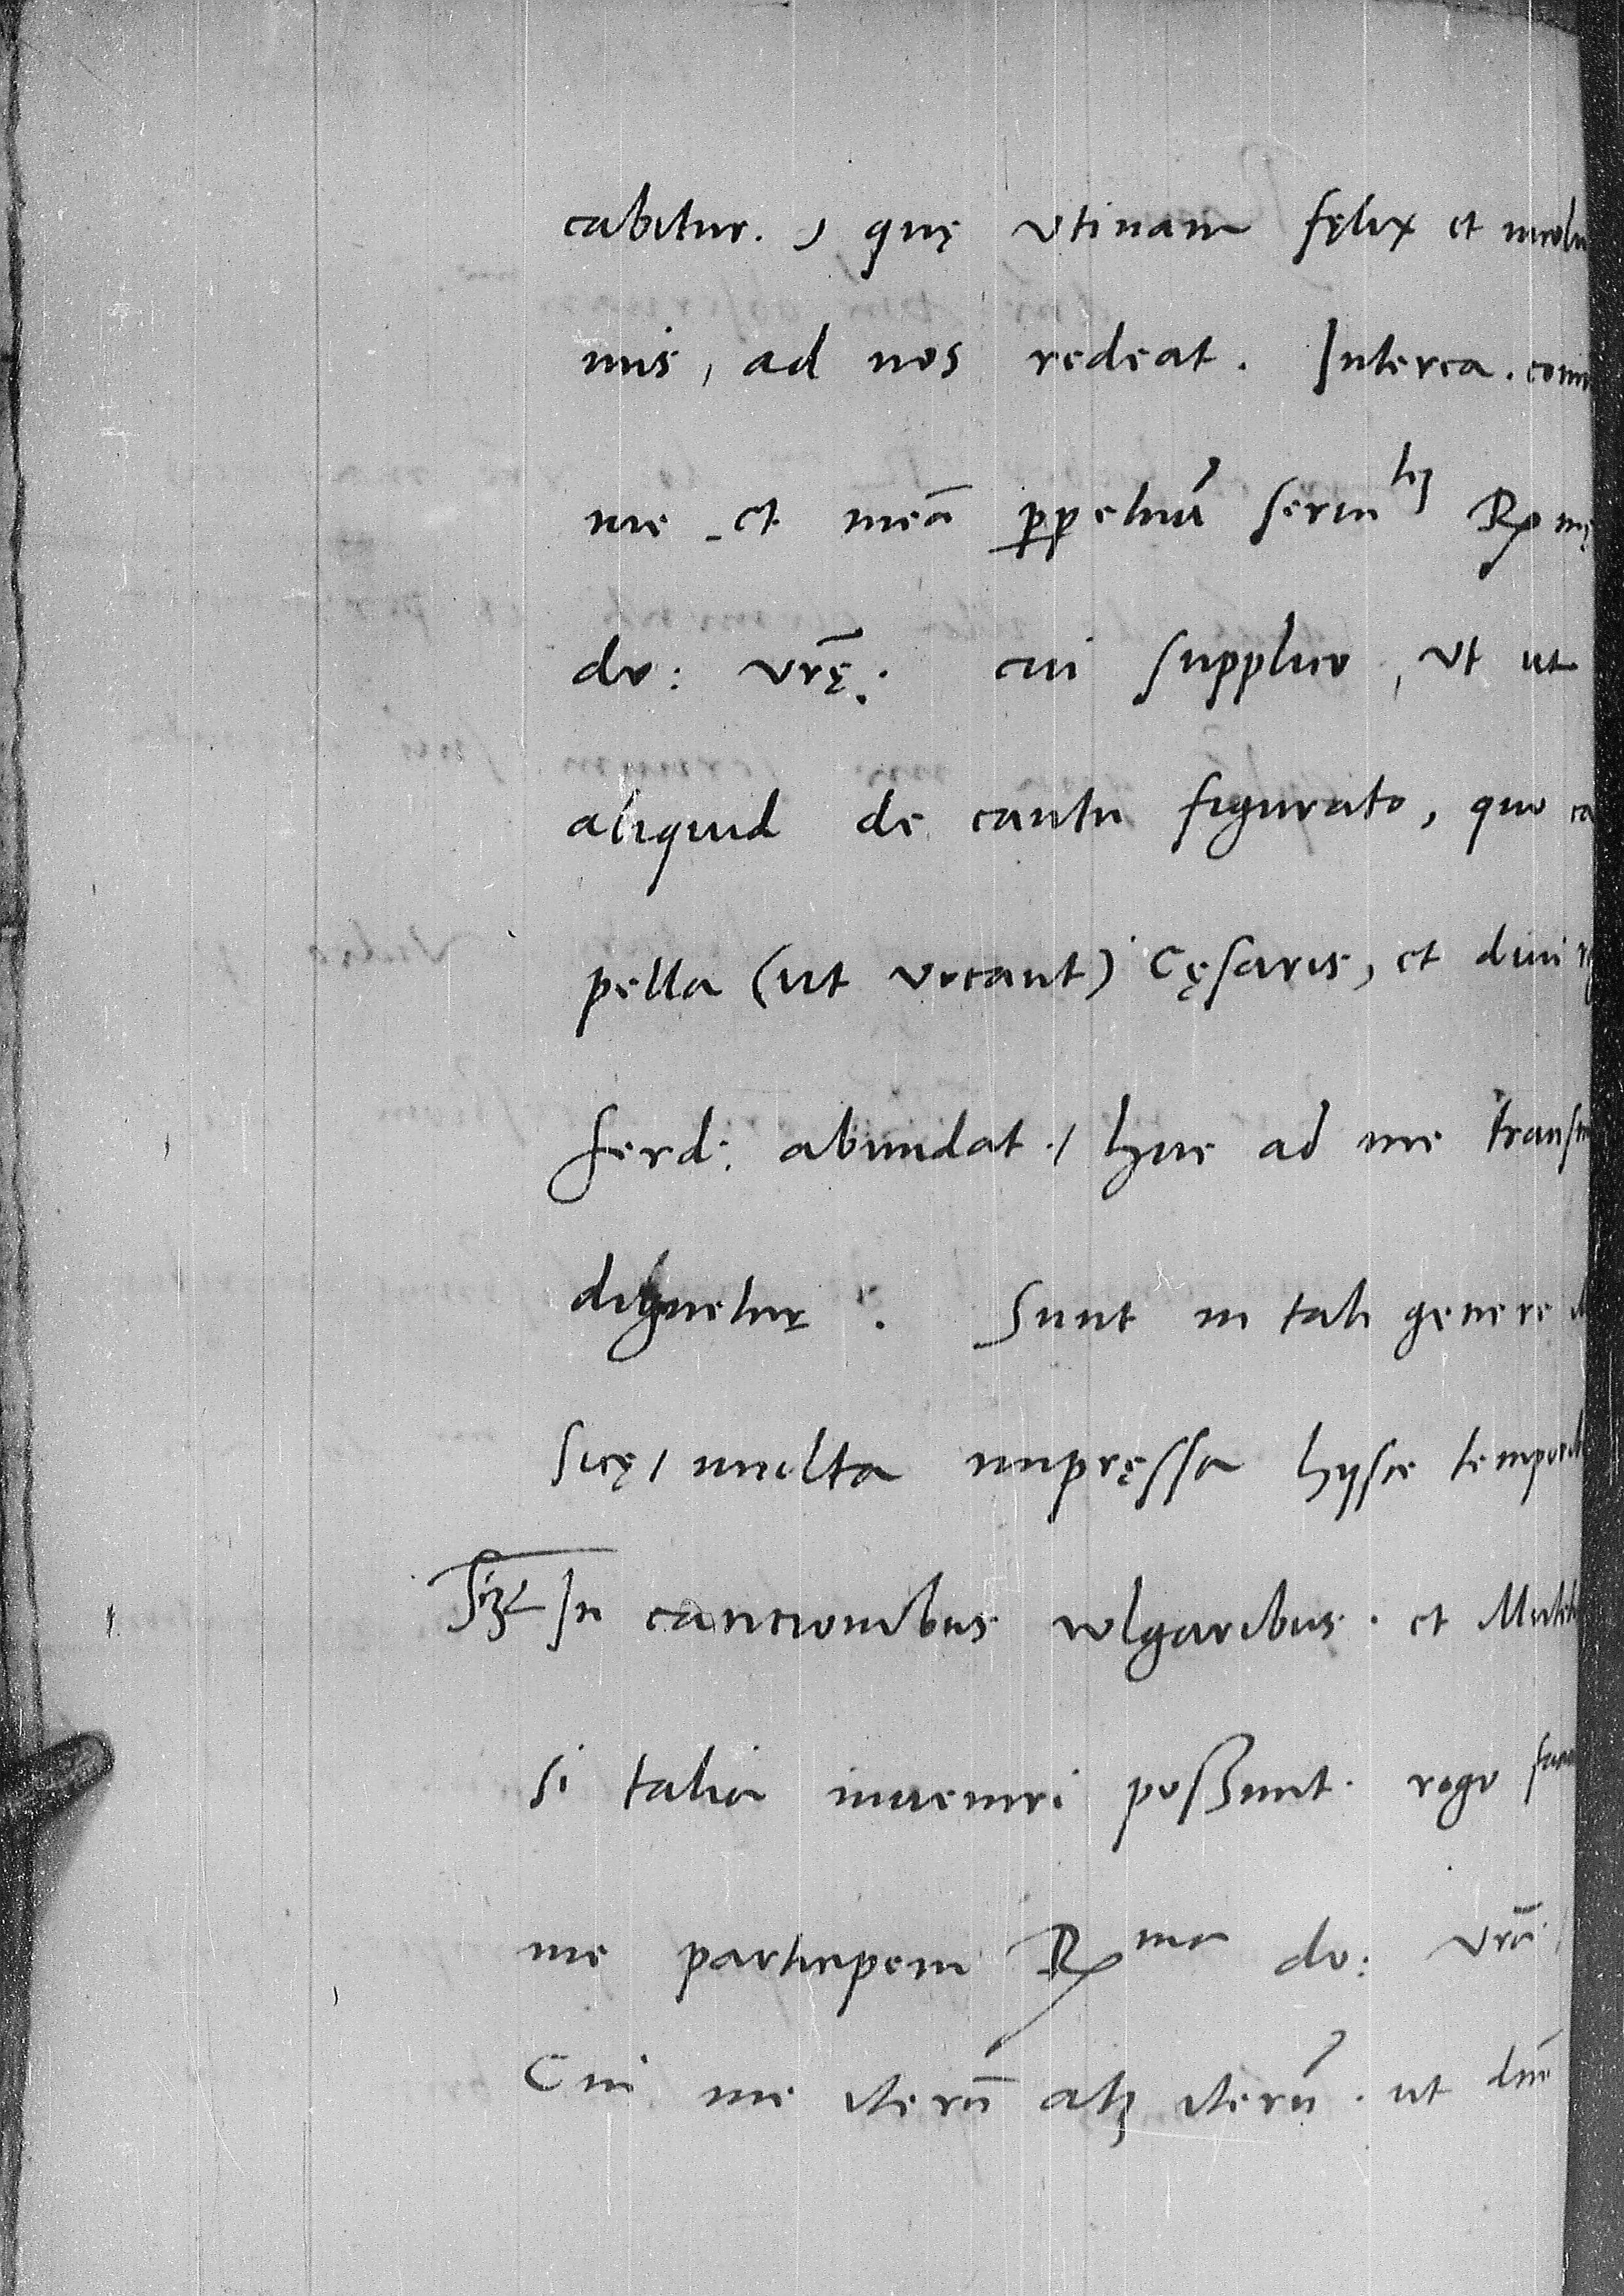 cabitur., quę vtinam fęlix et incolu
mis, ad nos redeat. Interea. com
me et meā ꝑpetuā seruitꝫ Rmę
do: vrę: cui supplico, vt ut
aliquid de cantu figurato, quo ca
pella (ut vocant) Cęsaris, et diui
ferd: abundat./ huc ad me transm
dignetur. Sunt in tali genere
sicę, multa impręssa hysce temporib
Sꝫ In cancionibus vulgaribus. et Mutet
si talia inueniri possunt. rogo fa
me participem Rma do: vrā
Cui me iterū atꝫ iterū. ut